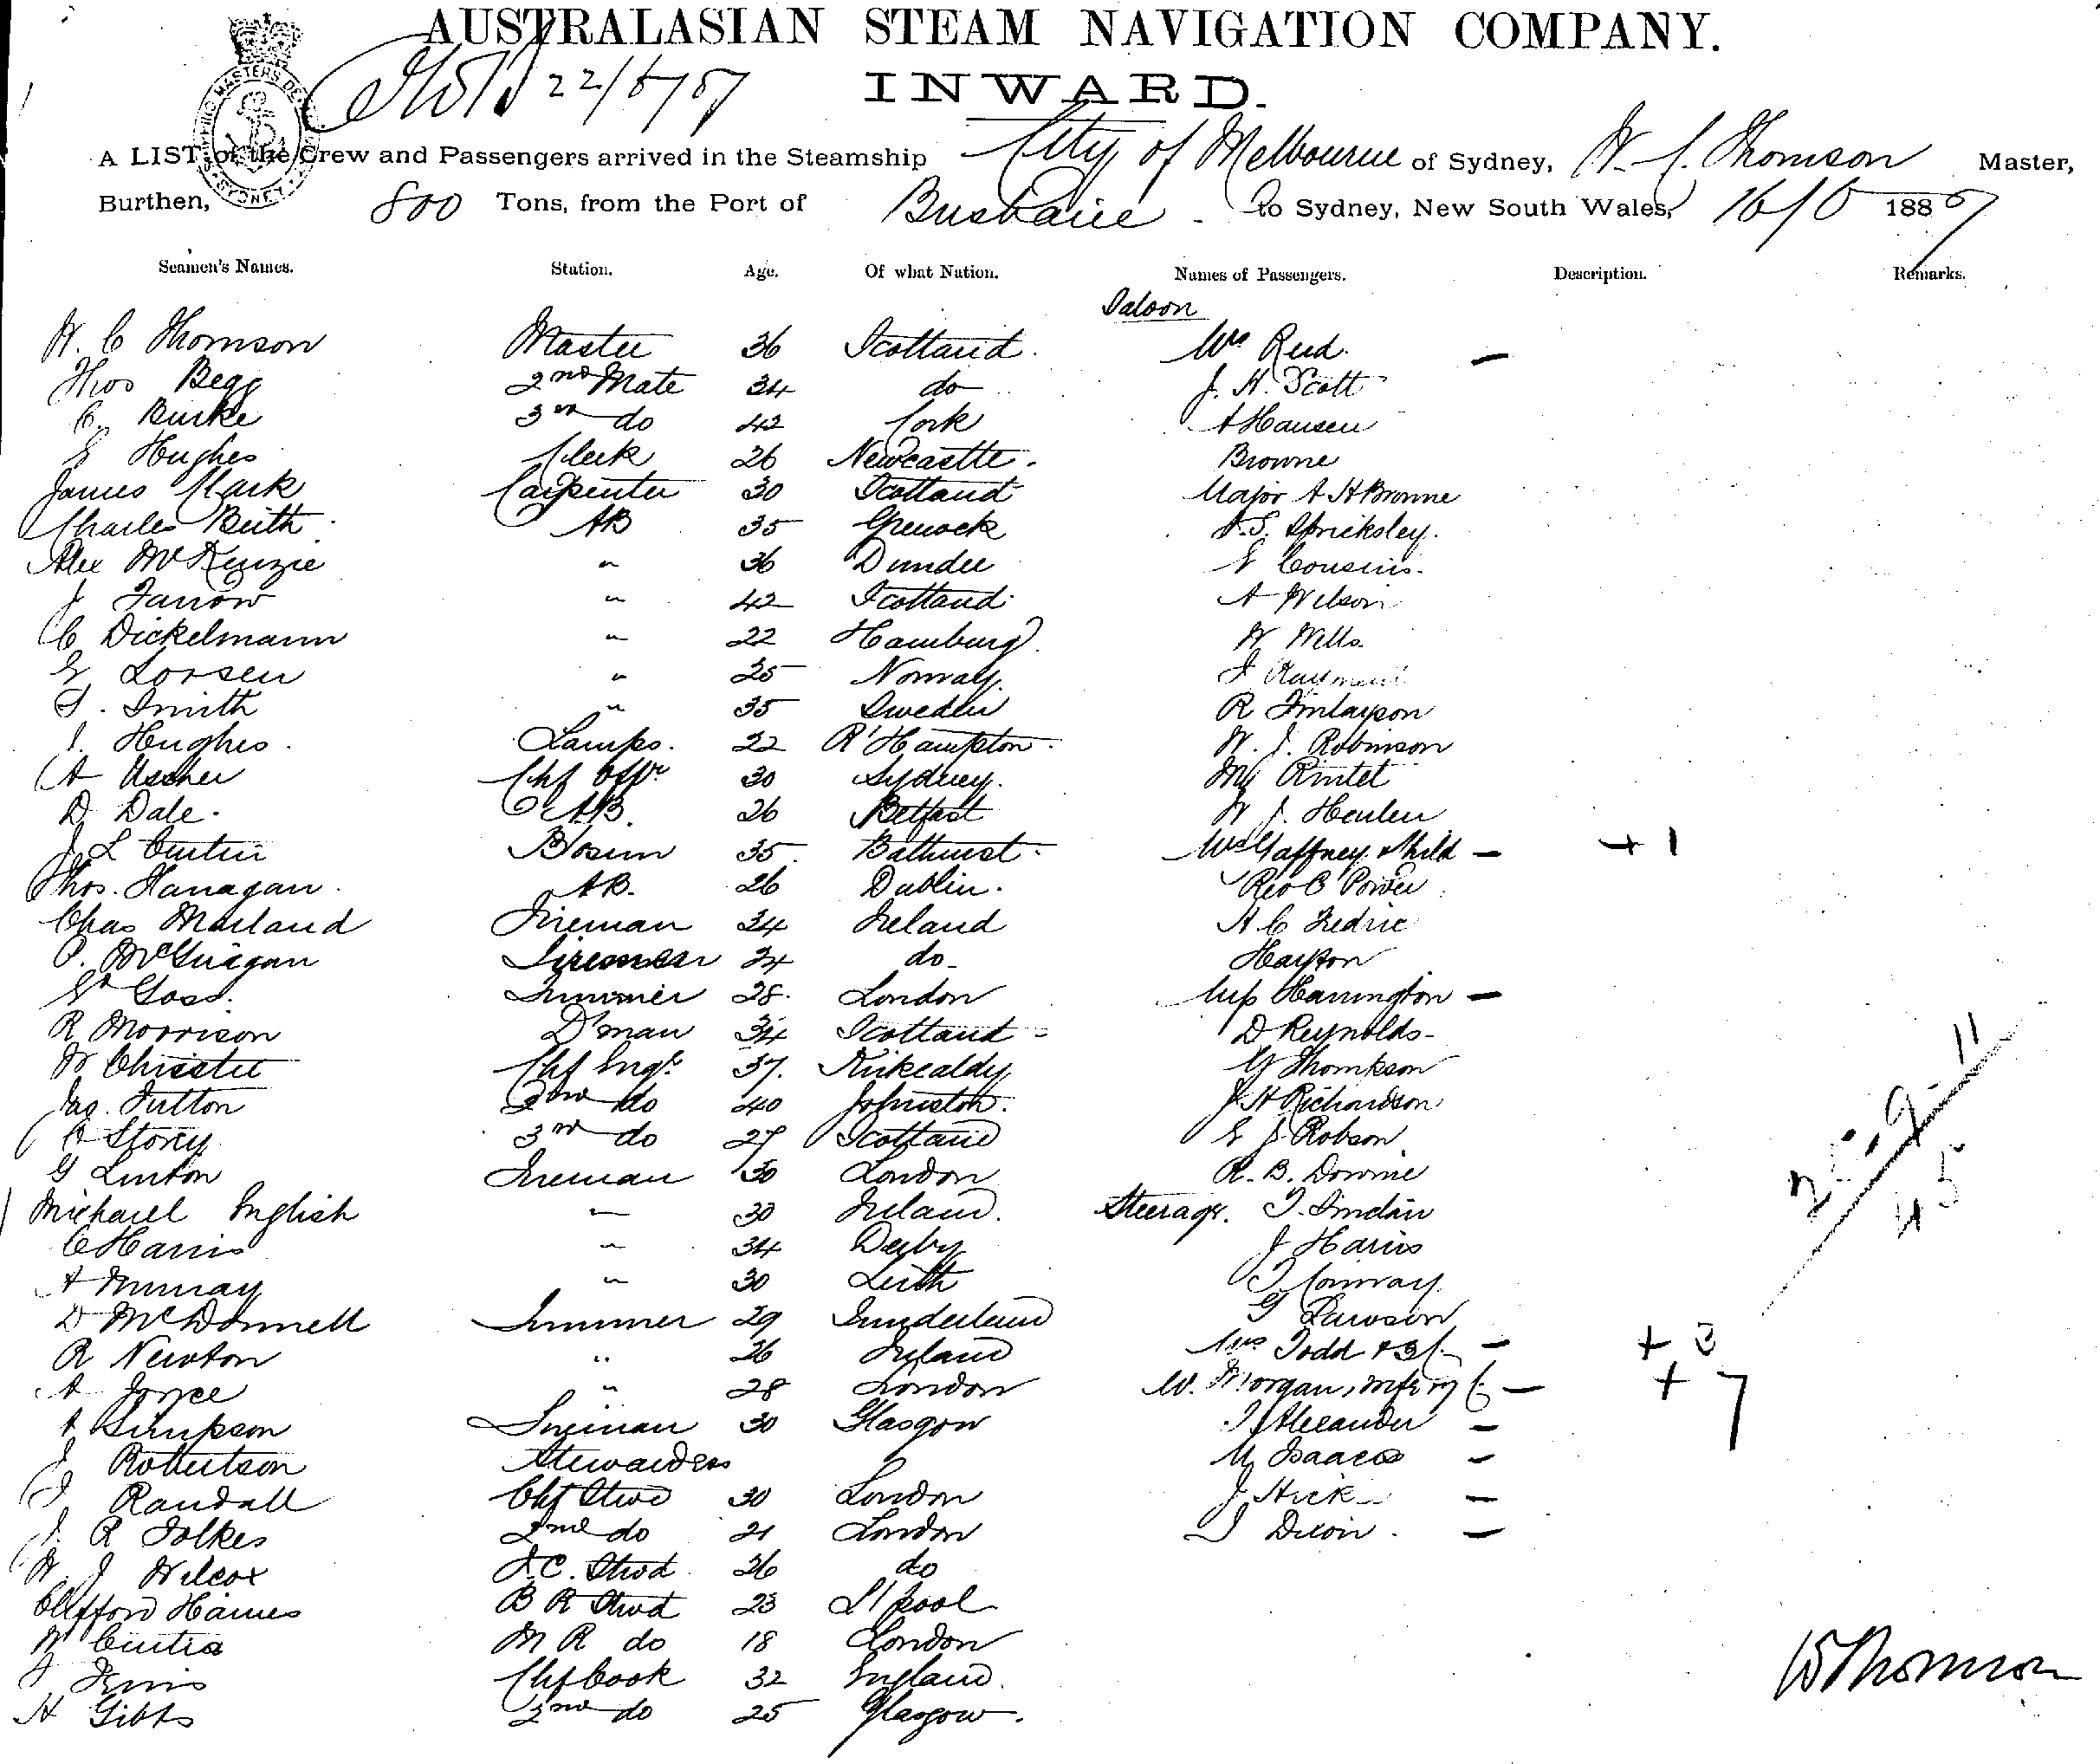 AUSTRALASIAN STEAM NAVIGATION COMPANY.
22/5/87
INWARD.
A LIST of the Crew and Passengers arrived in the Steamship City of Melbourne of Sydney, W. C. Thomson Master,
Burthen, 800 Tons, from the Port of Brisbane to Sydney, New South Wales, 16/5 1887
Seamen's Names. Station. Age. Of what Nation. Names of Passengers. Description. Remarks.
Saloon
W. C Thomson Master 36 Scotland. Mrs Reid. —
Thos Begg 2nd Mate 34 do J. H. Scott
C. Burke 3rd do 42 Cork A Hansen
E Hughes Clerk 26 Newcastle. Browne
James Clark Carpenter 30 Scotland Major A H Browne
Charles Beith AB 35 Greenock Spricksley.
Alex McKenzie " 36 Dundee E Cousins.
J Farrow " 42 Scotland A Wilson
C Dickelmann " 22 Hamburg. W Wells
E Lorsen " 25 Norway.
S. Smith " 35 Sweden R Finlayson
J. Hughes. Lamps. 22 R'Hampton. W. J. Robinson
A Uscher Chf Offr 30 Sydney.
D Dale. AB. 26 Belfast W J. Henlen
J L Curtin Bosun 35. Bathurst. Mrs Gaffney & Child — + 1
Thos. Flanagan. AB. 26 Dublin. Rev C Power
Chas Marland Fireman 34 Ireland A C Fedric
P. McGuigan Fireman 34 do Hayson
Goss. Trimmer 28. London Harrington —
R Morrison D'man 34 Scotland D Reynolds
W Christie Chf Engr. 37. Kirkcaldy G Thompson
Jas. Fulton 2nd do 40 Johnston. J. H Richardson
A Storey 3rd do 27 Scotland E J. Robson
G Linton Fireman 30 London R. B. Downie
Michael English " 30 Ireland. Steerage.
C Harris " 34 Derby J Harris
A Murray " 30 Leith T Conway
D McDonnell Trimmer 29 Sunderland G Lawson
R Newton " 26 Ireland Mrs Todd & 3 C — + 3
A Joyce " 28 London W. Morgan, wife & 7 C — + 7
A Simpson Fireman 30 Glasgow J Alexander —
J Robertson Stewardess M Isaacs —
J Randall Chf Stwd 30 London J Hick —
J. R Folkes 2nd do 21 London J Dixon. —
W. J Wilcox F.C. Stwd 26 do
Clifford Haines B R Stwd 23 L'pool
W Curtis M R do 18 London
J Ferris Chf Cook 32 England.
H Gibbs 2nd do 25 Glasgow.
25 9 11
45
W Thomson